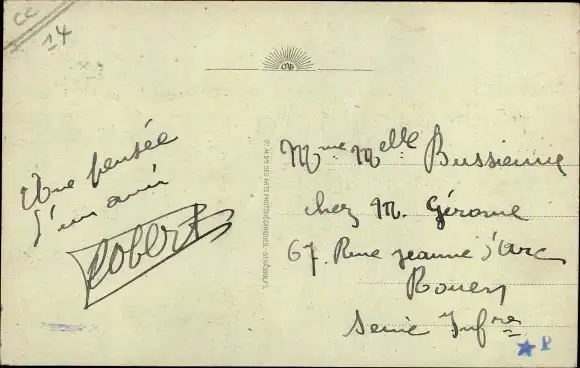 CC
14
Une pensée
d'un ami
Robert
Mme Melle Bussienne
chez M. Gérome
67 Rue jeanne d'Arc
Rouen
Seine Infre